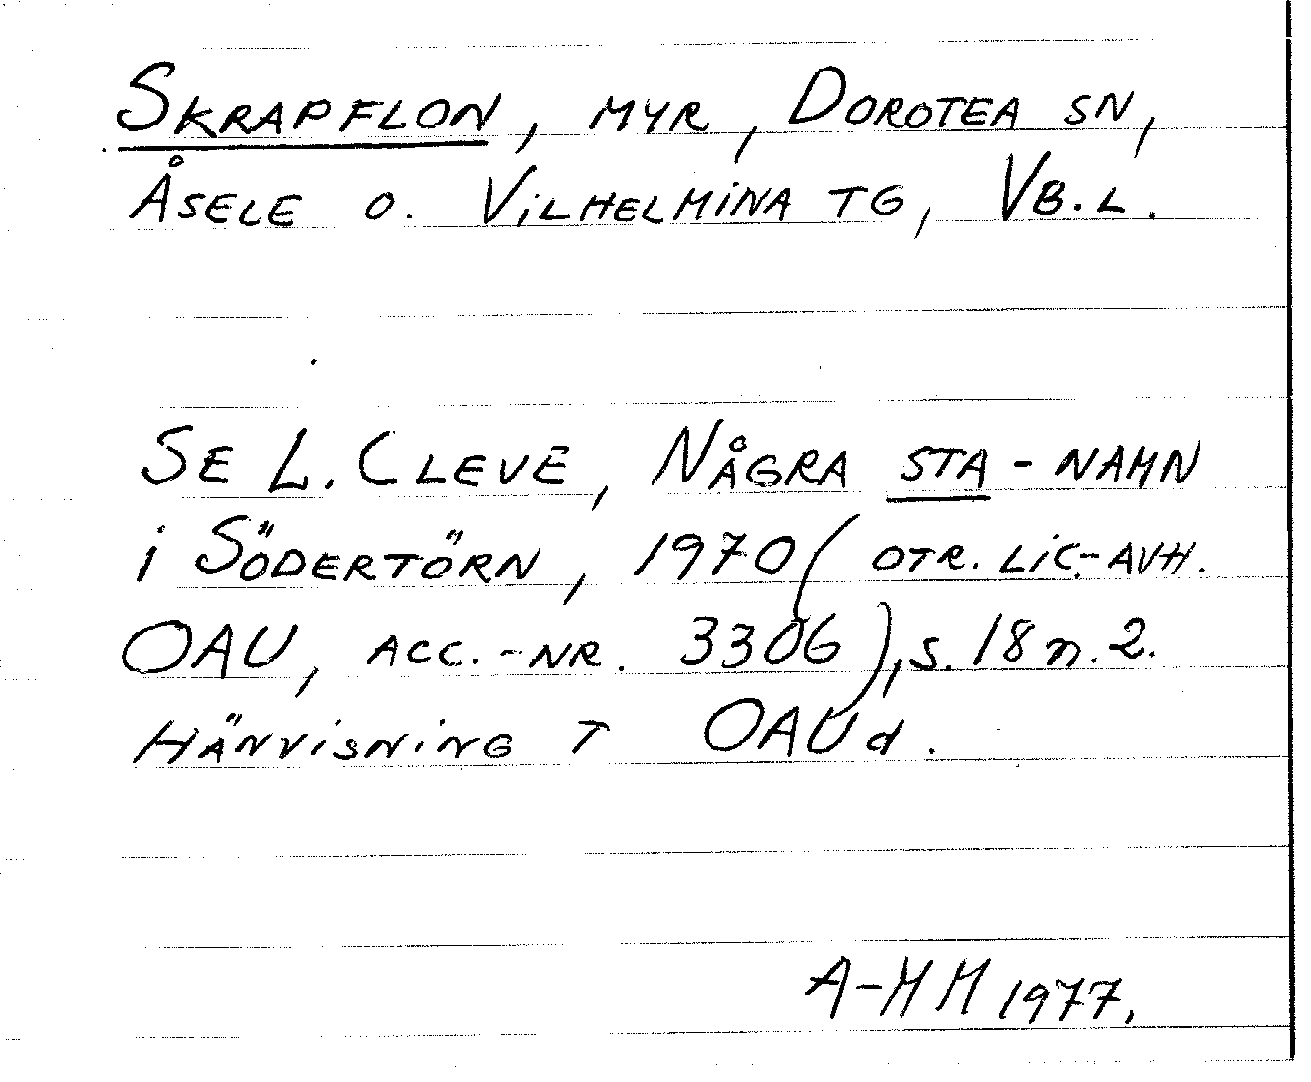 SKRAPFLON, MYR, DOROTEA SN,
ÅSELE O. VILHELMINA TG, VB.L.
SE L. CLEVE, NÅGRA STA-NAMN
i SÖDERTÖRN, 1970 (OTR. LIC.-AVH.
OAU, ACC.-NR. 3306), s. 18 n. 2.
HÄNVISNING T OAUd.
A-MM 1977.